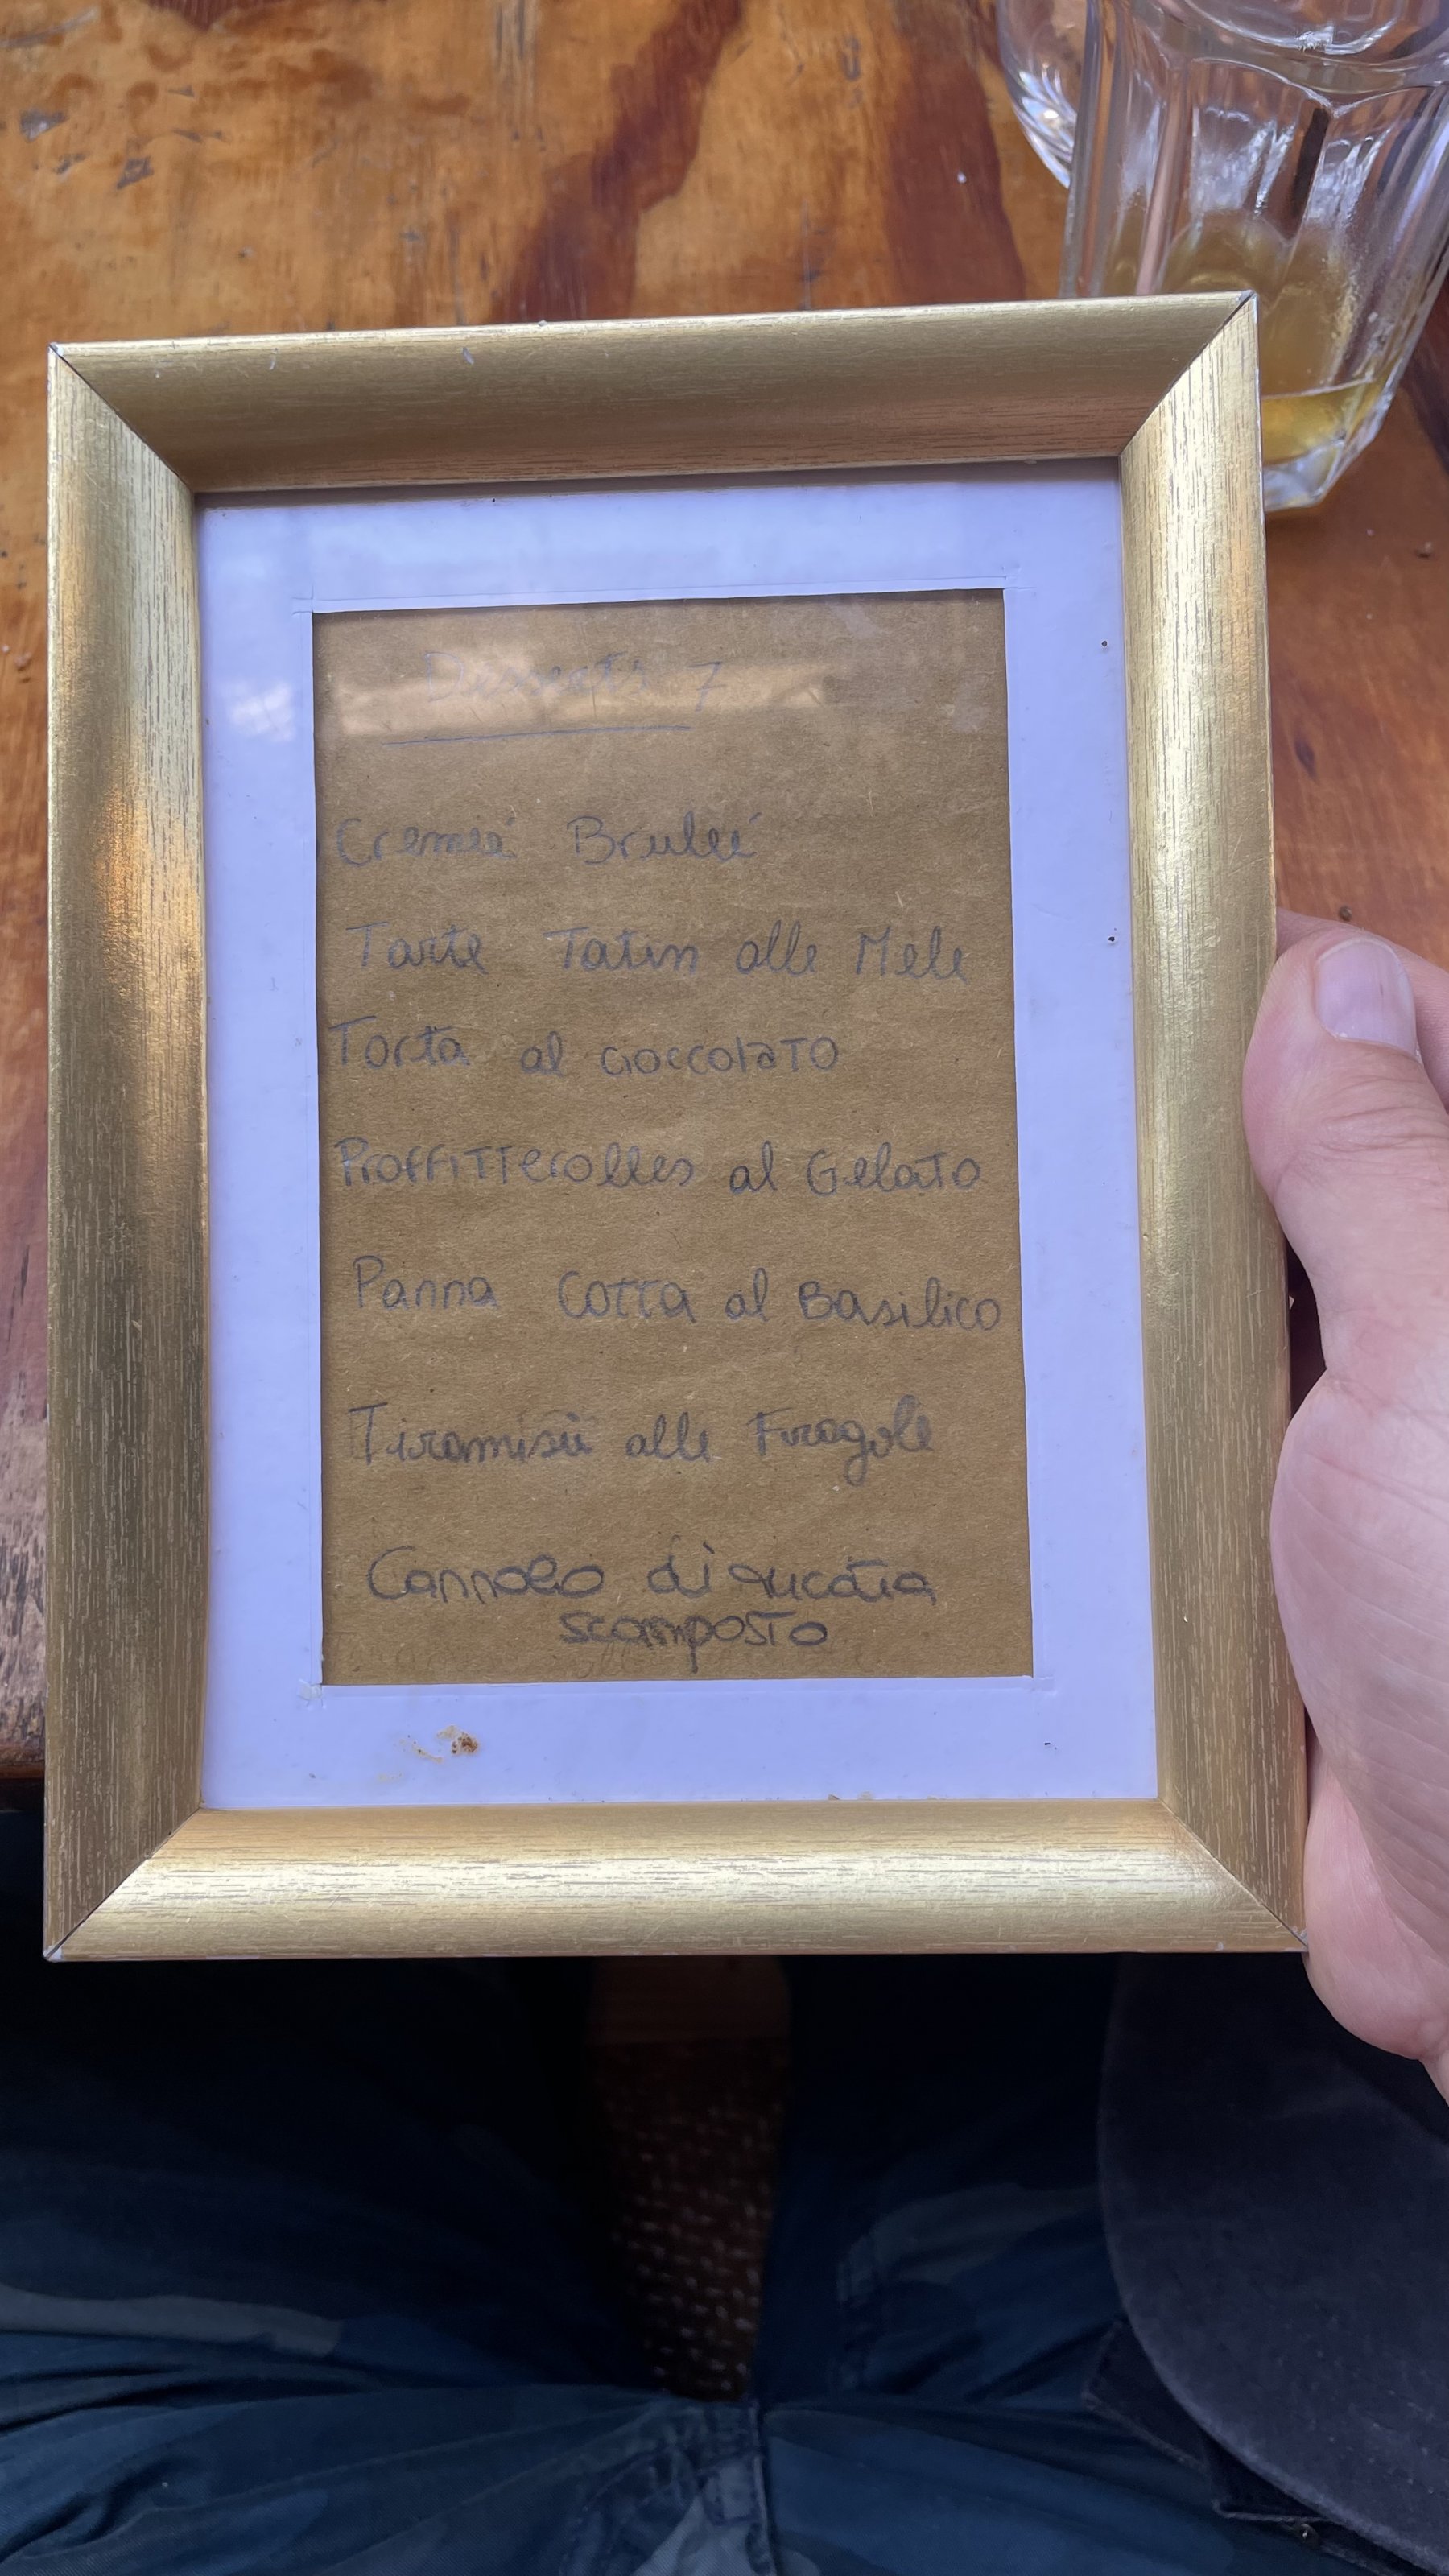 Desserts 7
Cremeé Bruleé
Tarte Tatin alle Mele
Torta al cioccolato
Proffitterolles al Gelato
Panna Cotta al Basilico
Tiramisù alle Fragole
Cannolo di
scomposto